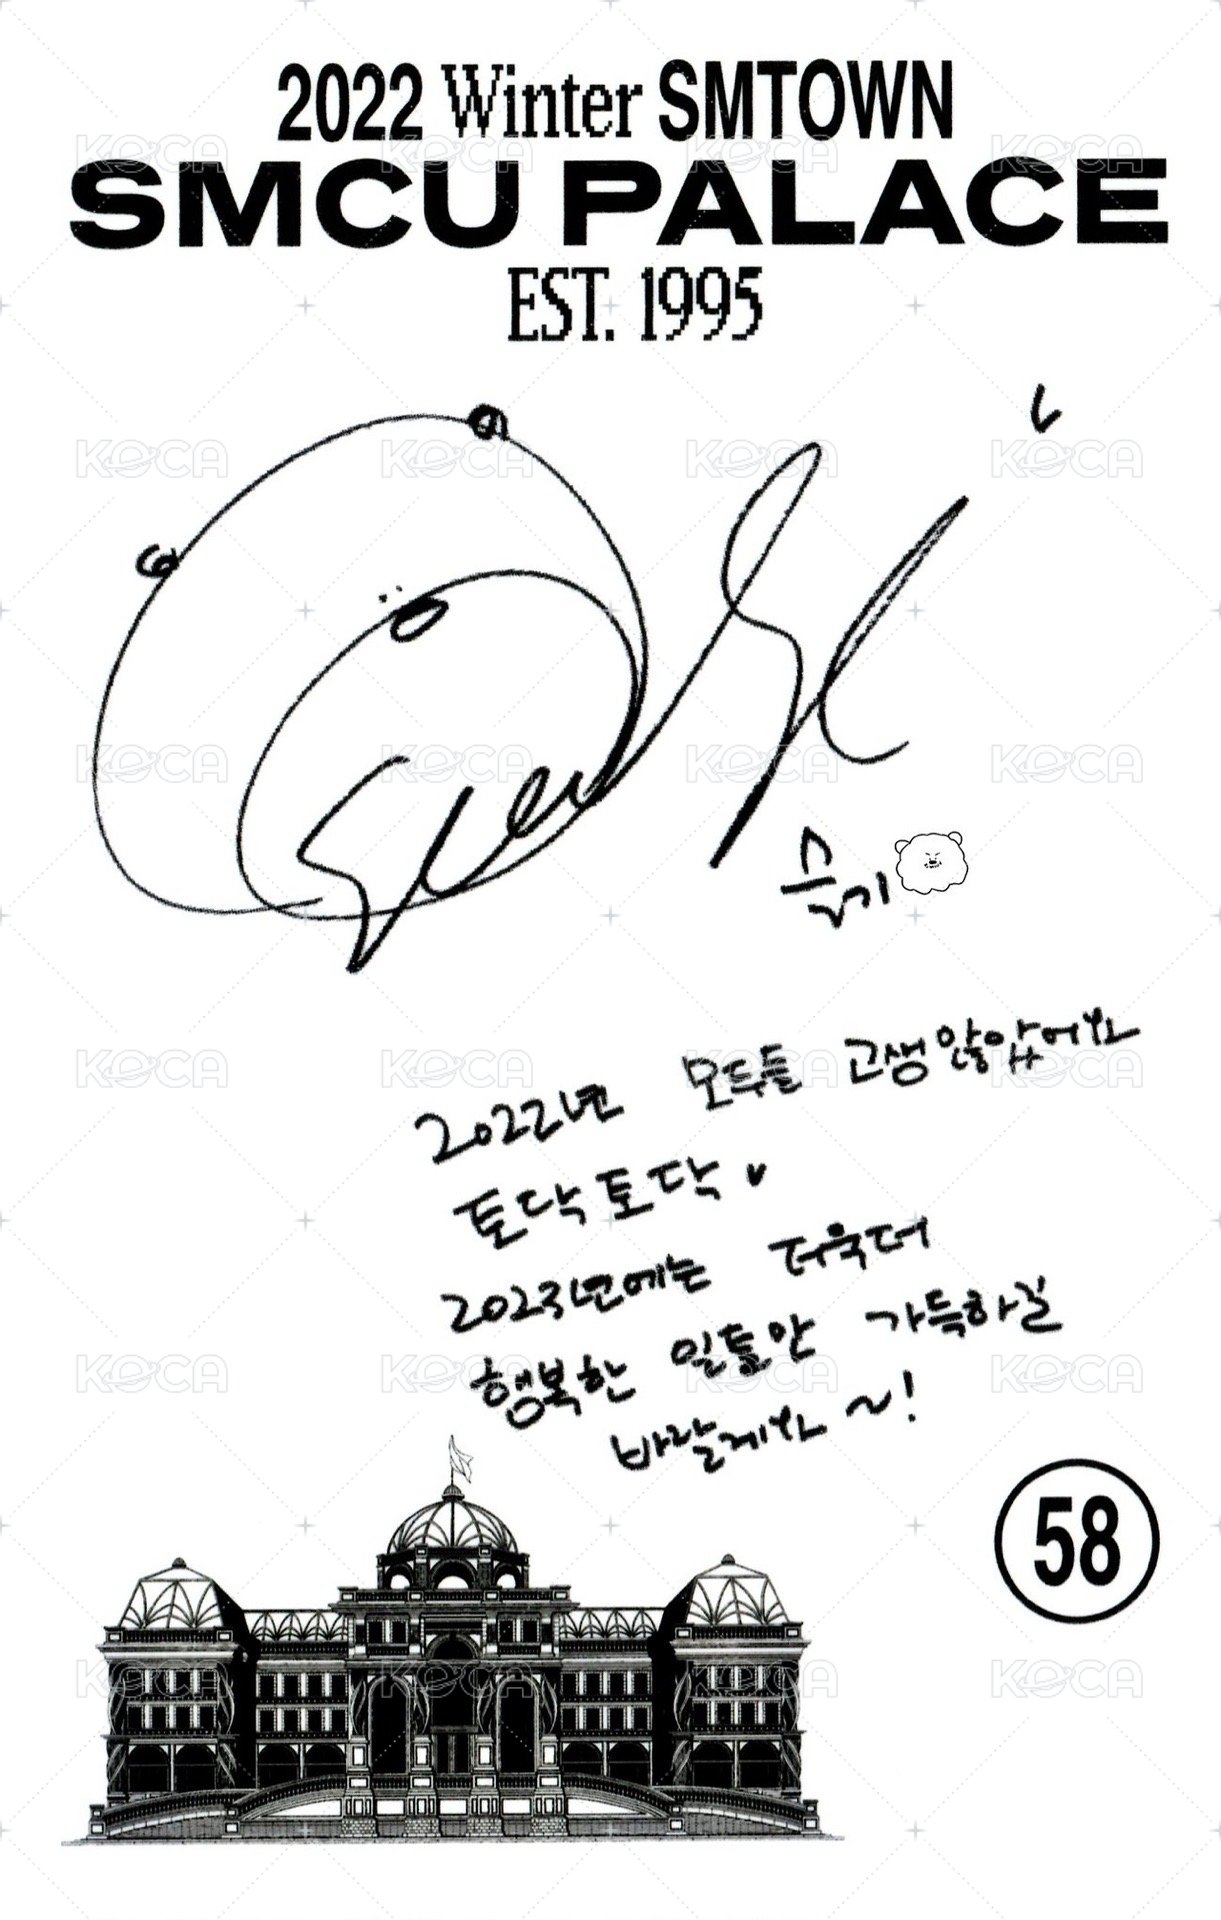 2022 Winter SMTOWN
SMCU PALACE
EST. 1995
슬기
2022년 모두들 고생 많았어요
토닥토닥
2023년에는 더욱더
행복한 일들만 가득하길
바랄게요 ~!
58
KOCA